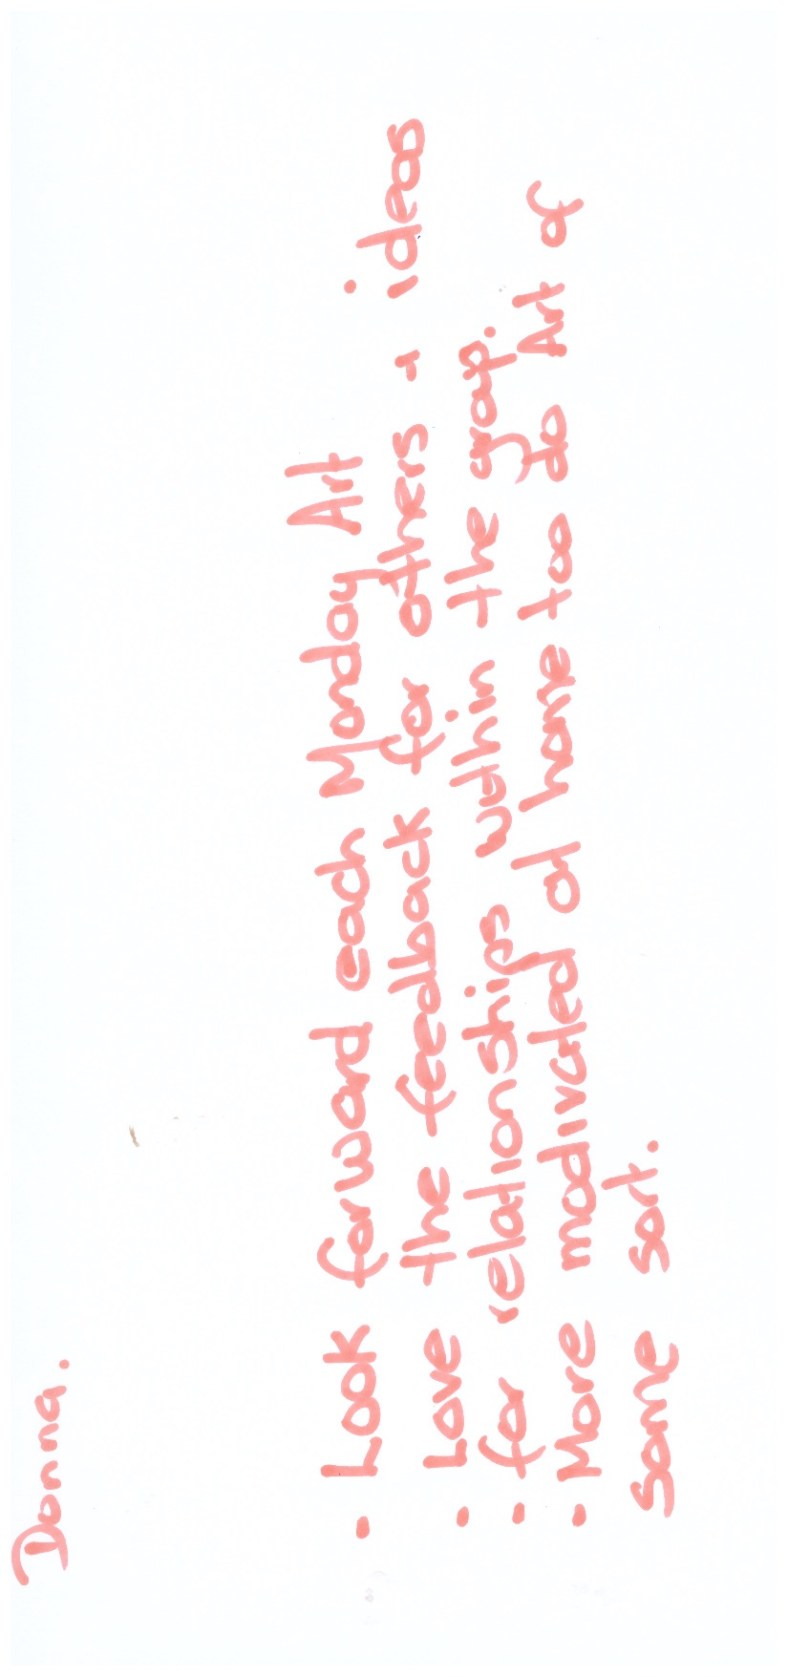 Donna.
• Look forward each Monday Art
• Love the feedback for others & ideas
• for relationships within the group.
• More modivated at home too do Art of
some sort.